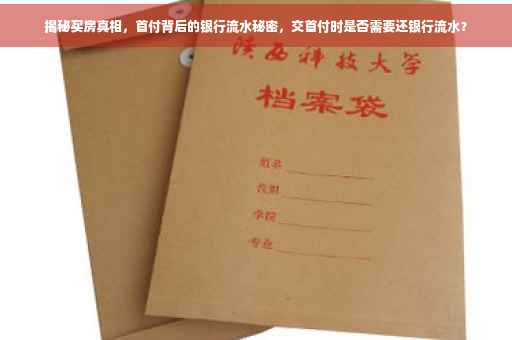 揭秘买房真相，首付背后的银行流水秘密，交首付时是否需要还银行流水？
陕西科技大学
档案袋
学院
专业